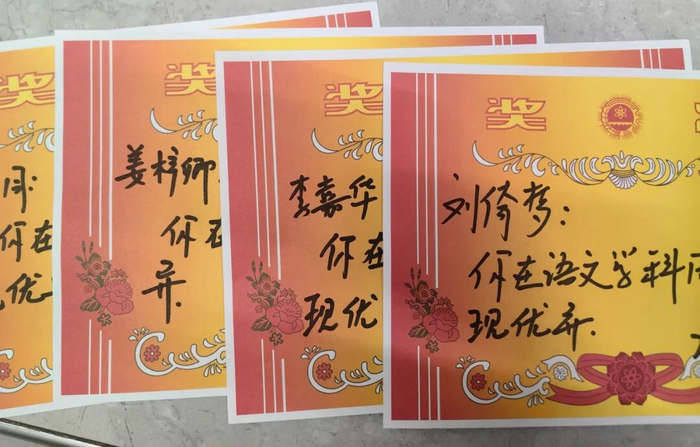 奖
奖
奖
奖
姜梓卿
你在
异.
李嘉华
你在
现优
刘倚梦:
你在语文学科
现优异.
你在
现优